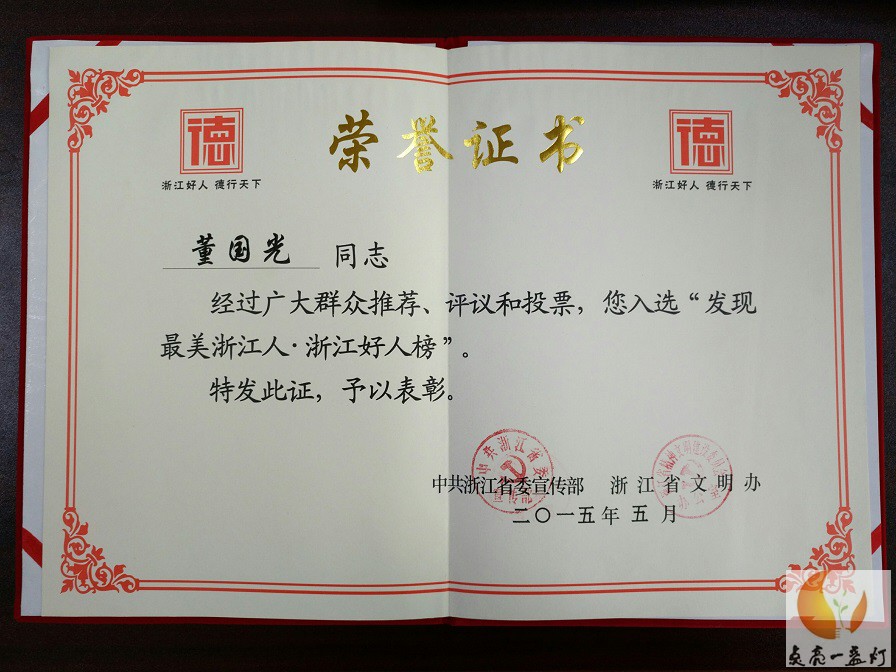 荣誉证书
德
浙江好人 德行天下
德
浙江好人 德行天下
董国光 同志
经过广大群众推荐、评议和投票，您入选“发现
最美浙江人·浙江好人榜”。
特发此证，予以表彰。
中共浙江省委宣传部 浙江省文明办
二〇一五年五月
点亮一盏灯